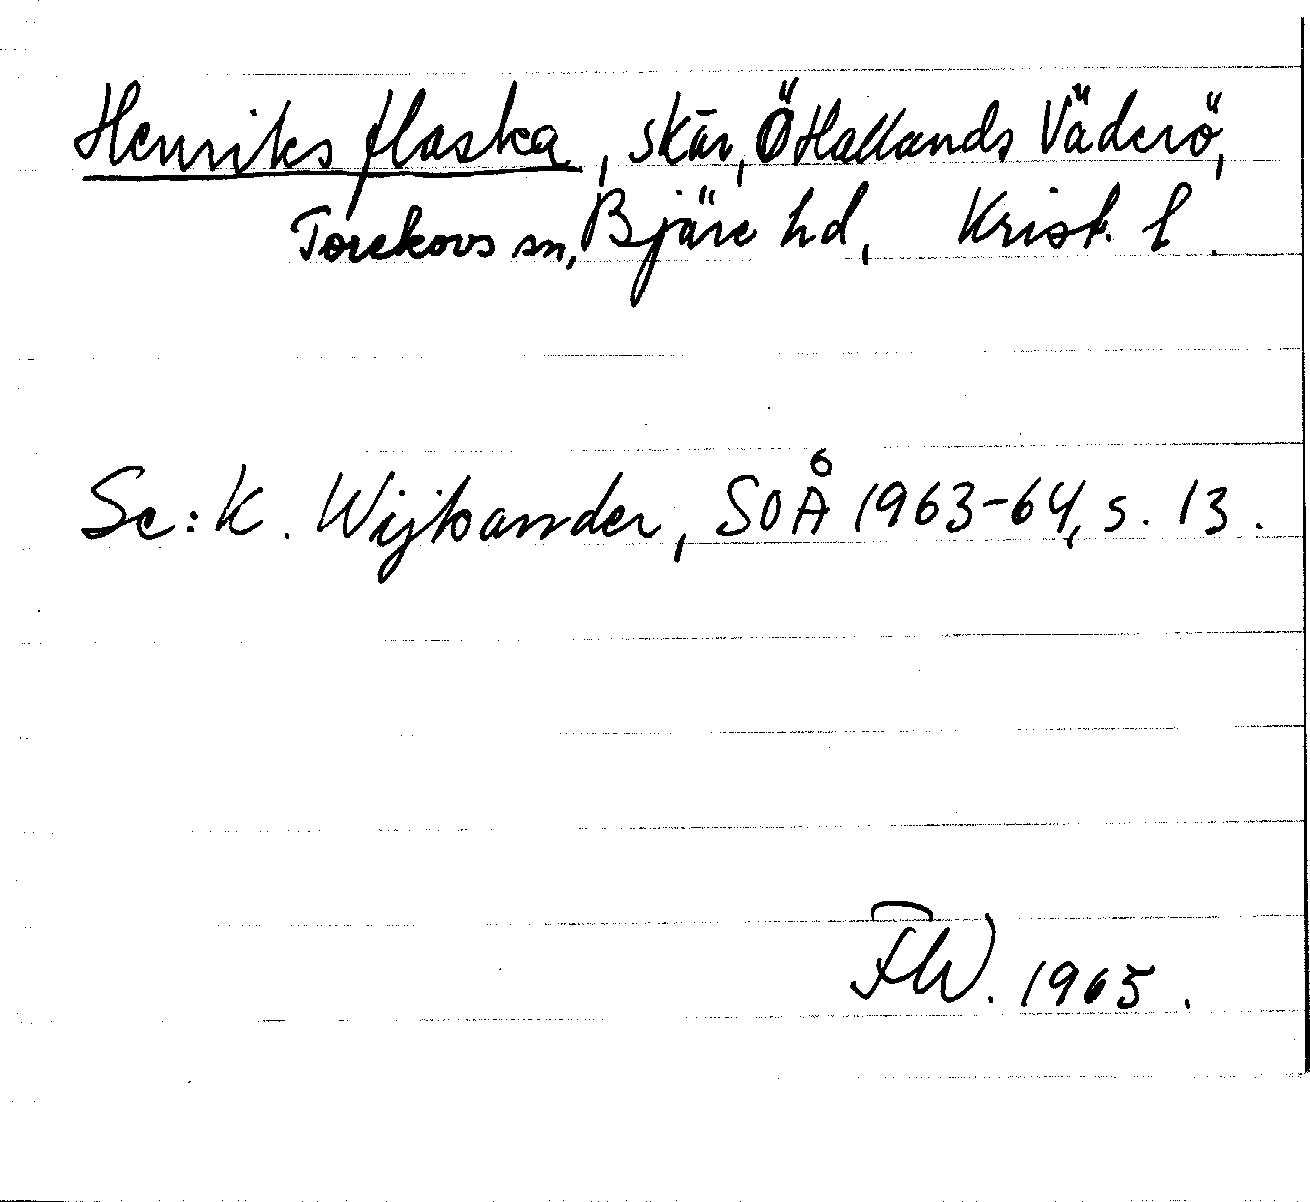 Henriks flaska, skär, Ö Hallands Väderö,
Torekovs sn, Bjäre hd, Krist. l.
Se: K. Wijkander, SOÅ 1963-64, s. 13.
FW. 1965.